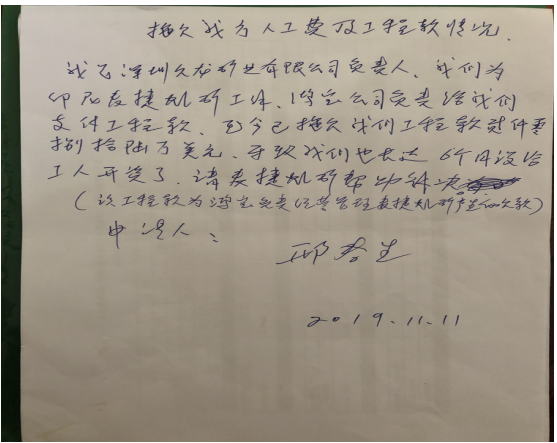 拖欠我方人工费及工程款情况.
我是深圳久龙矿业有限公司负责人、我们为
印尼表捷机矿工作、鸿宝公司负责给我们
支付工程款、至今已拖欠我们工程款
捌拾陆万美元、导致我们也长达6个月没给
工人开资了、请表捷机矿帮助解决
(该工程款为鸿宝负责经营管理表捷机矿产生的欠款)
申请人:
2019.11.11